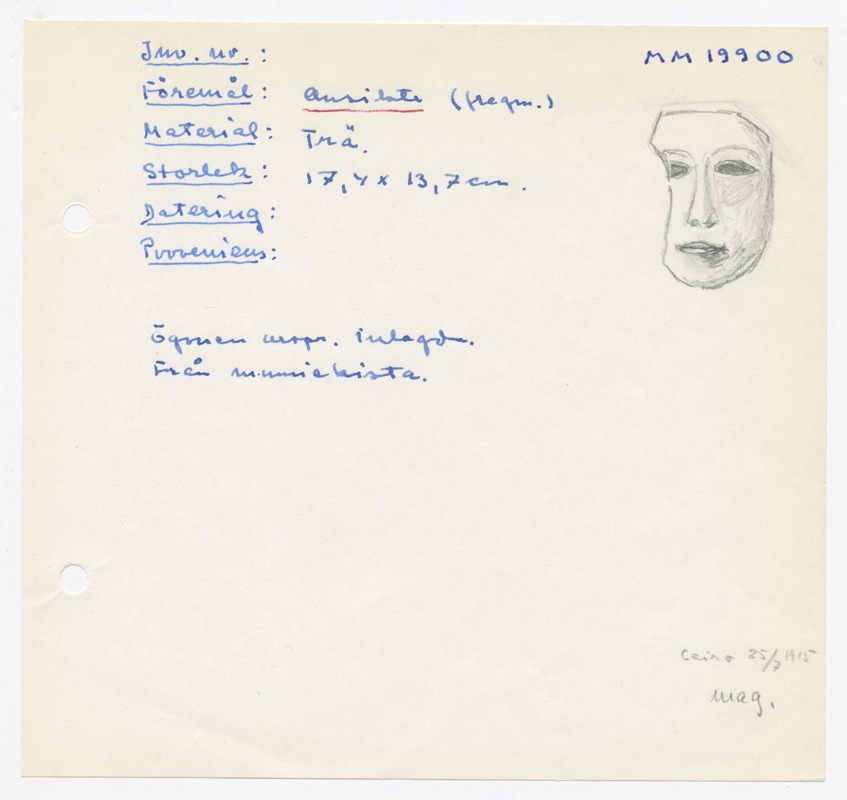 Inv. nr. : MM 19900
Föremål : Ansikte (fragm.)
Material : Trä.
Storlek : 17,4 x 13,7 cm.
Datering :
Proveniens :
Ögonen urspr. inlagda.
Från mumiekista.
Cairo 25/7 1915
mag.